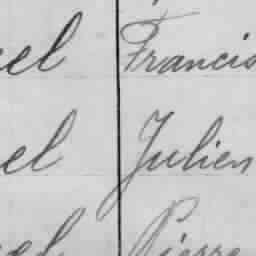 el Francis
el Julien
el Pierre